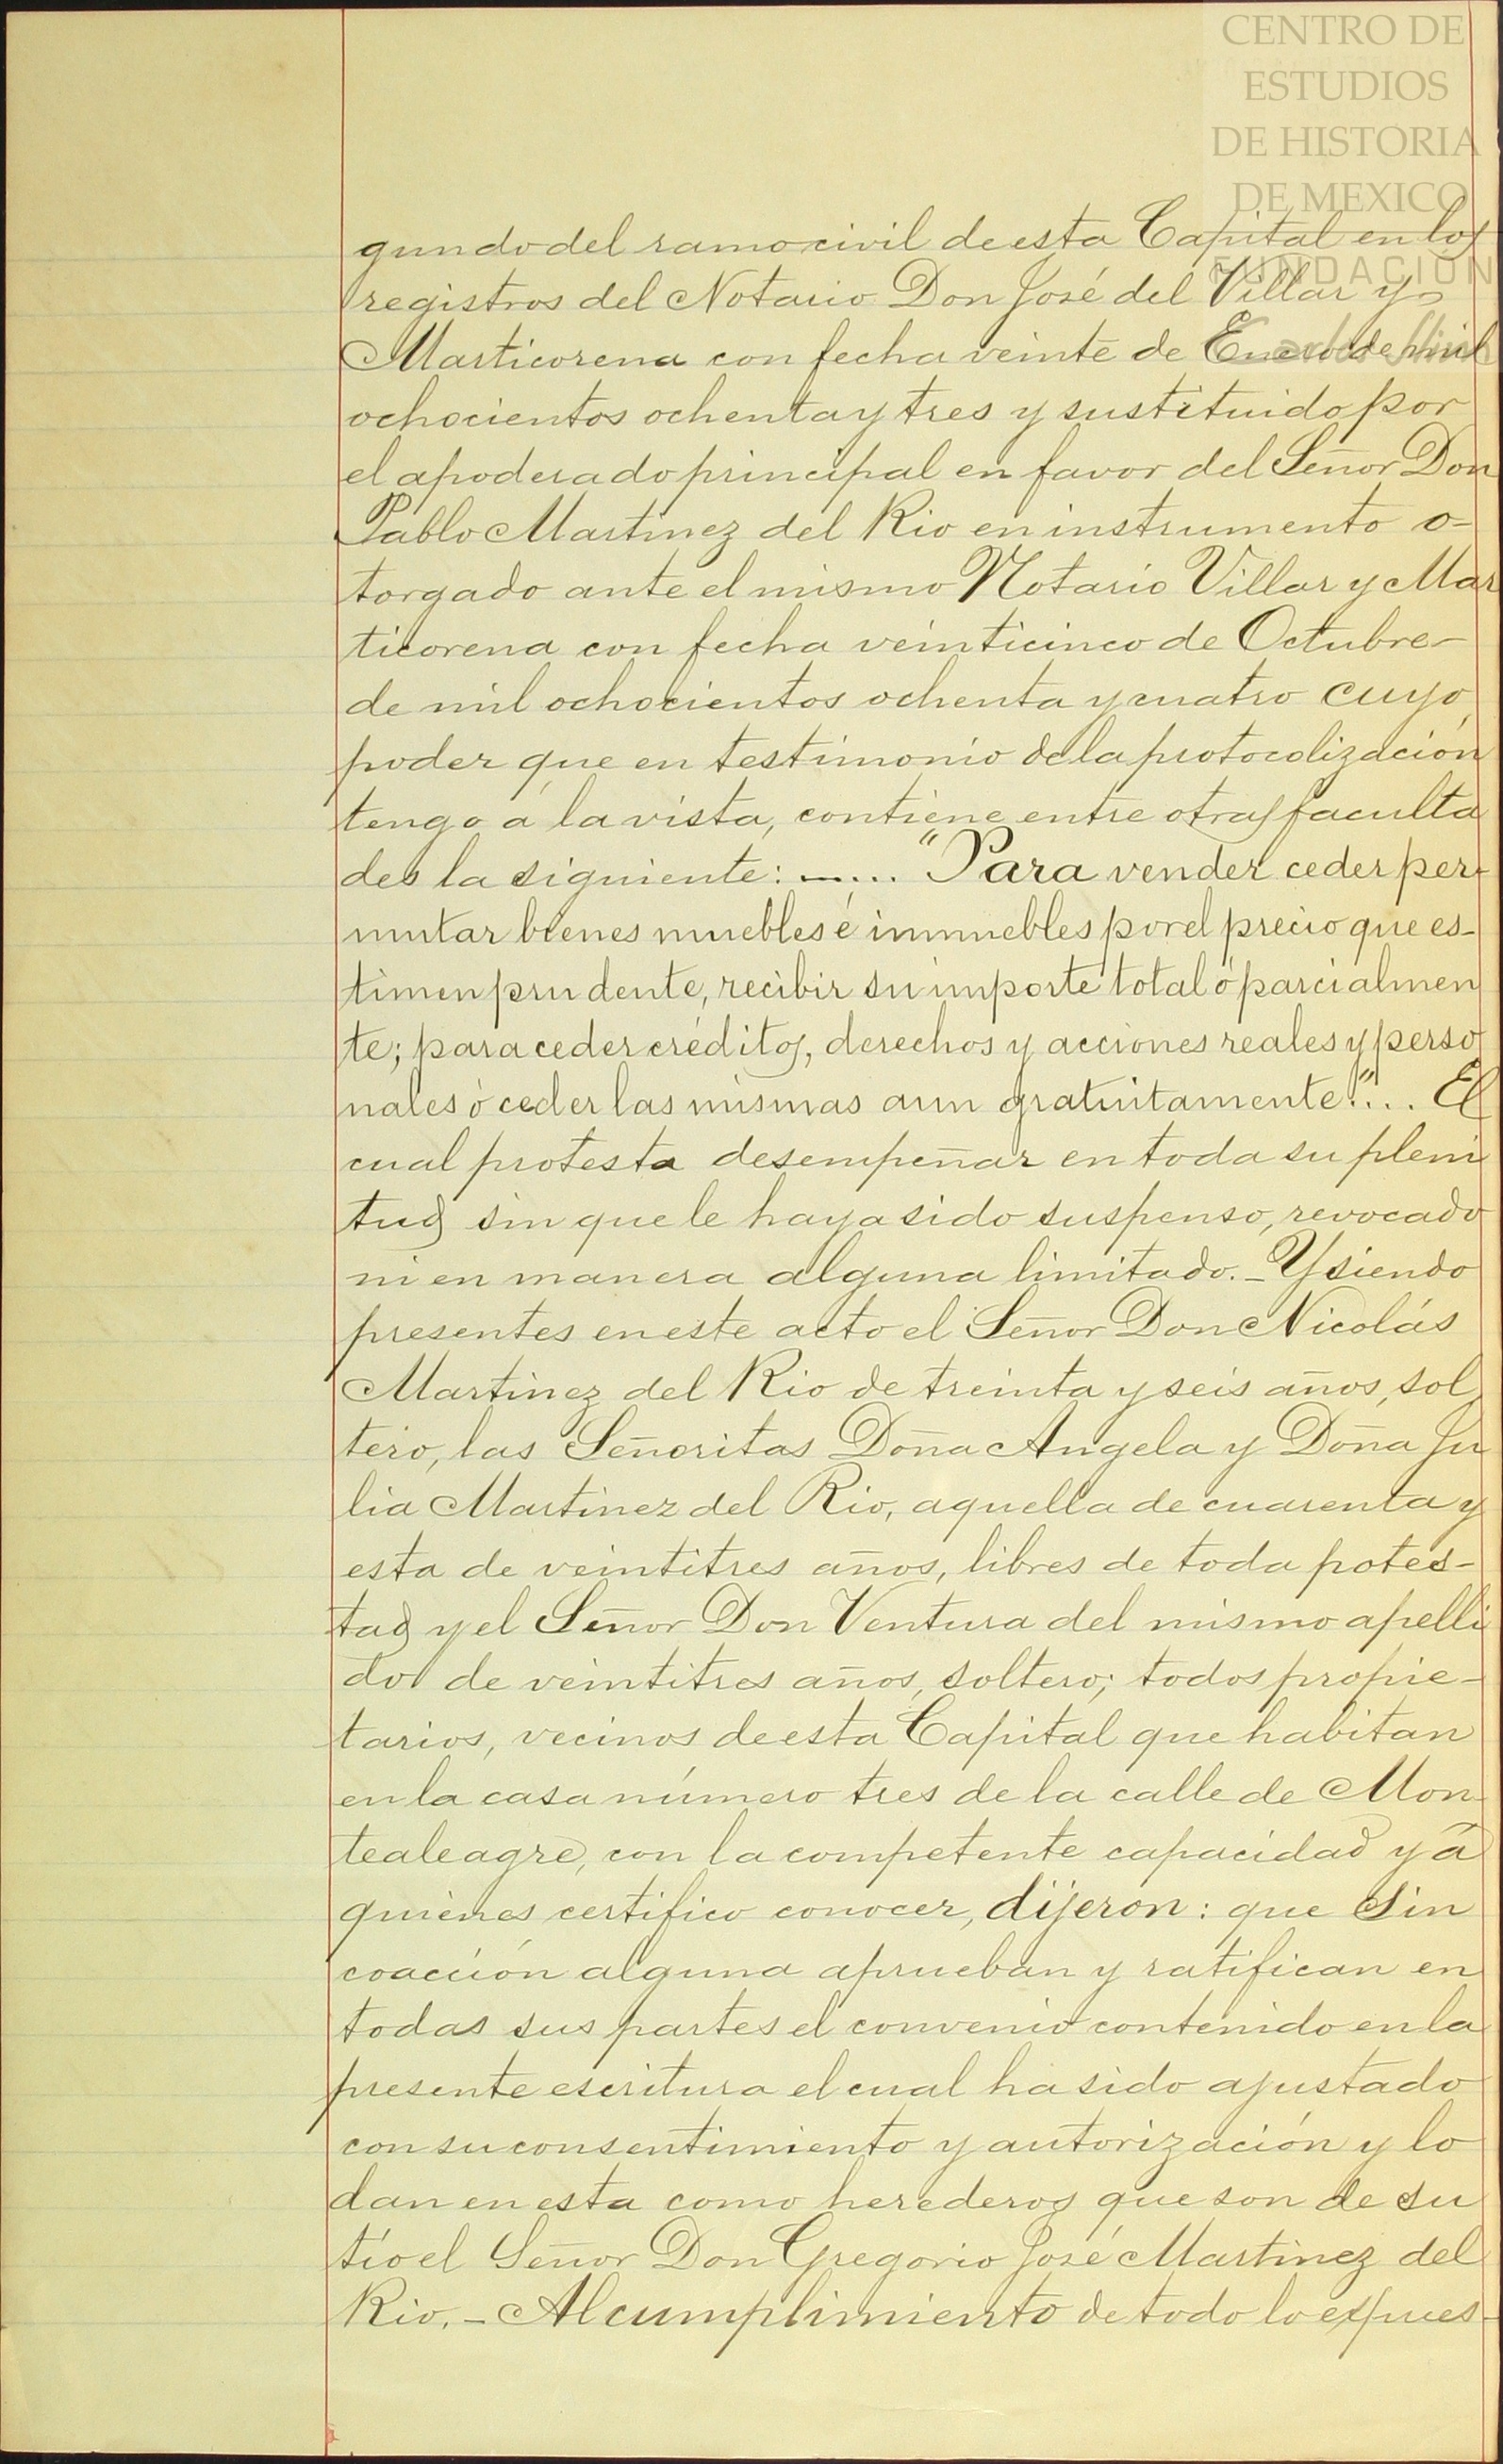 CENTRO DE
ESTUDIOS
DE HISTORIA
DE MEXICO
FUNDACIÓN
gundo del ramo civil de esta Capital en los
registros del Notario Don José del Villar y
Marticorena con fecha veinte de Enero de mil
ochocientos ochenta y tres y sustituido por
el apoderado principal en favor del Señor Don
Pablo Martinez del Rio en instrumento o-
torgado ante el mismo Notario Villar y Mar
ticorena con fecha veinticinco de Octubre
de mil ochocientos ochenta y cuatro cuyo
poder que en testimonio de la protocolización
tengo á la vista, contiene entre otras faculta
des la siguiente: ...... "Para vender ceder per-
mutar bienes muebles é inmuebles por el precio que es-
timen prudente, recibir su importe total ó parcialmen
te; para ceder créditos, derechos y acciones reales y perso
nales ó ceder las mismas aun gratuitamente."... El
cual protesta desempeñar en toda su pleni
tud sin que le haya sido suspenso, revocado
ni en manera alguna limitado.- Y siendo
presentes en este acto el Señor Don Nicolás
Martinez del Rio de treinta y seis años, sol
tero, las Señoritas Doña Angela y Doña Ju
lia Martinez del Rio, aquella de cuarenta y
esta de veintitres años, libres de toda potes-
tad y el Señor Don Ventura del mismo apelli
do de veintitres años, soltero; todos propie-
tarios, vecinos de esta Capital que habitan
en la casa número tres de la calle de Mon
tealeagre, con la competente capacidad y á
quienes certifico conocer, dijeron: que sin
coacción alguna aprueban y ratifican en
todas sus partes el convenio contenido en la
presente escritura el cual ha sido ajustado
con su consentimiento y autorización y lo
dan en esta como herederos que son de su
tío el Señor Don Gregorio José Martinez del
Rio.- Al cumplimiento de todo lo expues-